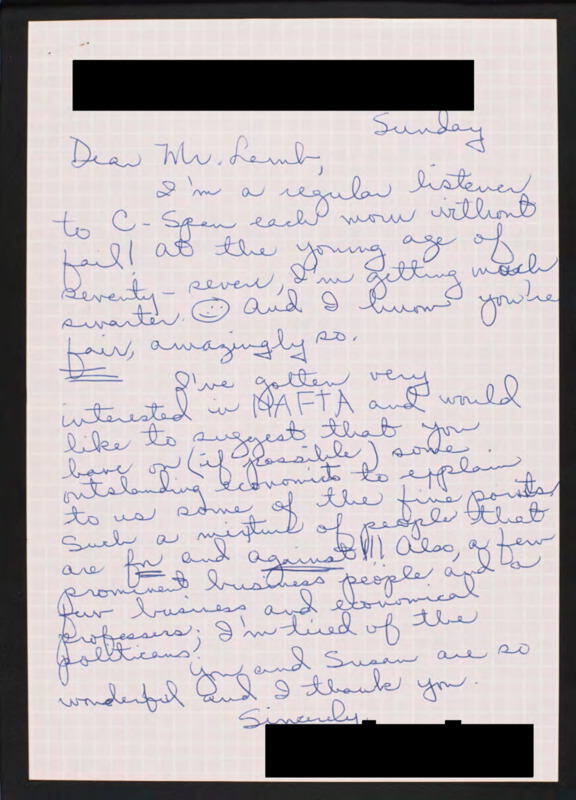 Sunday
Dear Mr. Lamb,
I'm a regular listener
to C-Span each morn without
fail! At the young age of
seventy-seven, I'm getting much
smarter. And I know you're
fair, amazingly so.
I've gotten very
interested in NAFTA and would
like to suggest that you
have on (if possible) some
outstanding economists to explain
to us some of the fine points
Such a mixture of people that
are for and against!!! Also, a few
prominent business people and a
few business and economical
professers; I'm tired of the
politicans.
You and Susan are so
wonderful and I thank you.
Sincerely,